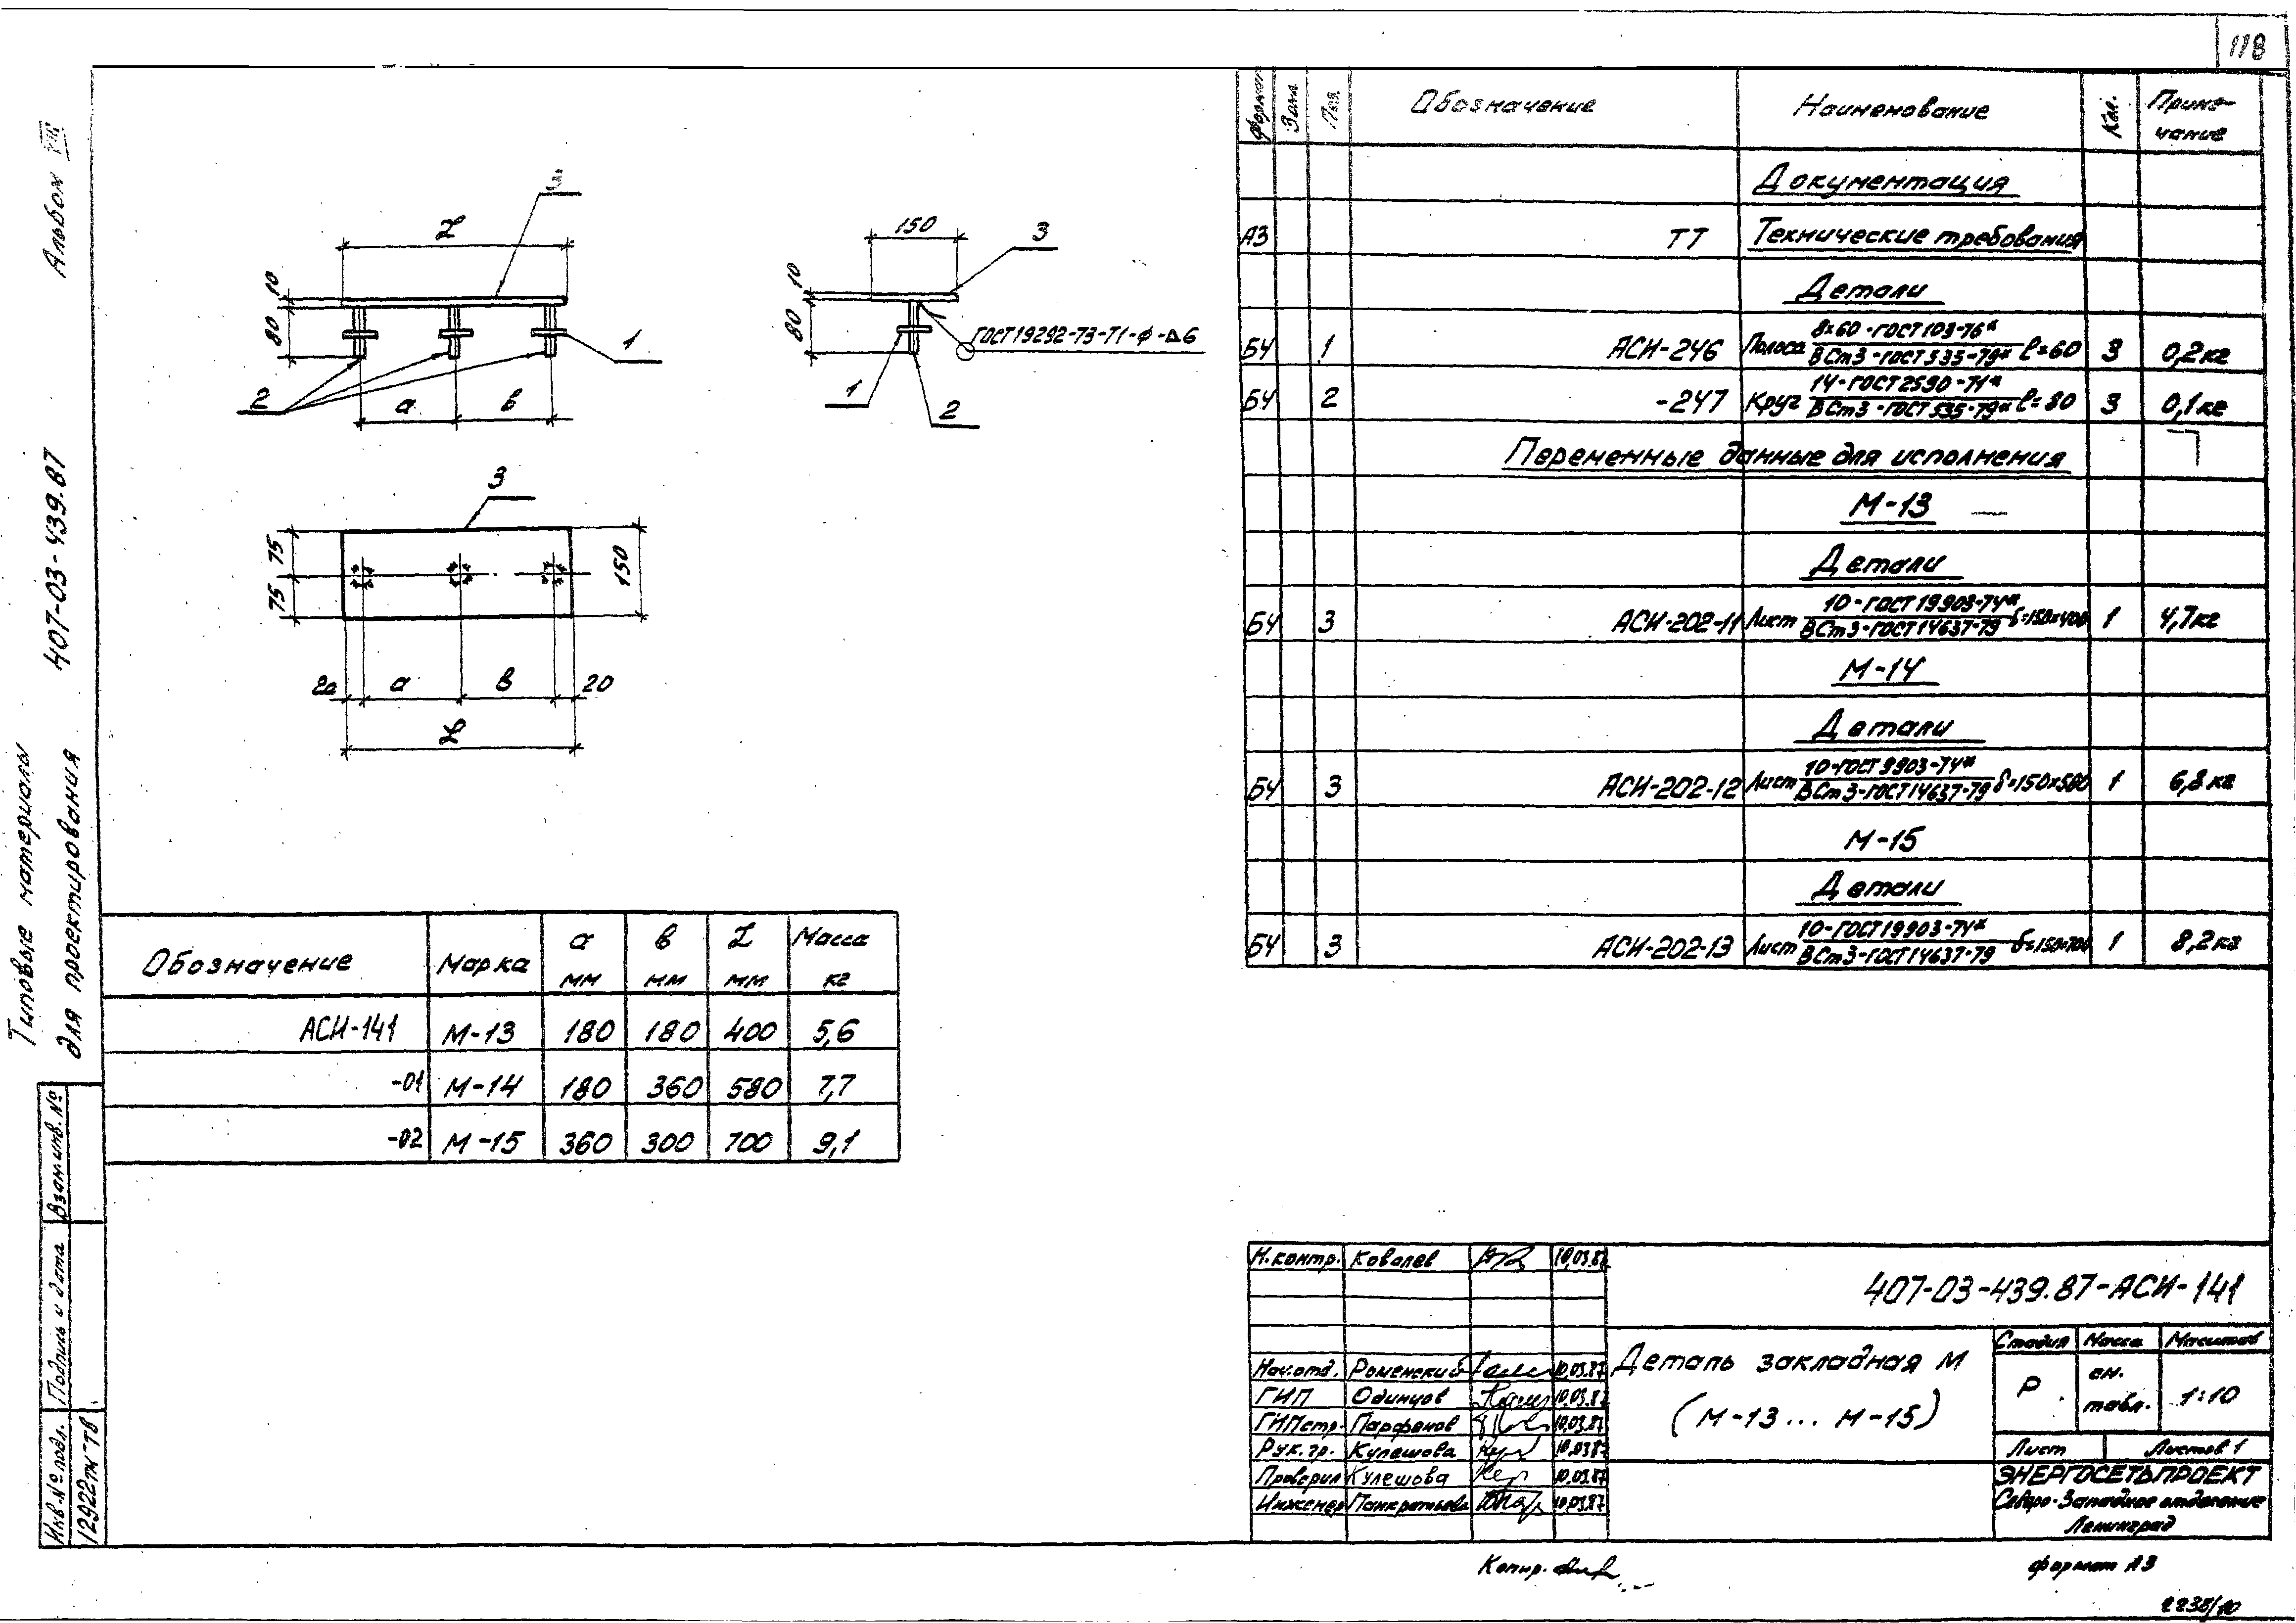 118
Альбом VIII
407-03-439.87
Типовые материалы
для проектирования
Взам.инв.№
Подпись и дата
Инв.№подл.
12922тм-тв
L
3
10
80
1
2
а
в
150
3
10
80
ГОСТ 19292-73-Т1-ф-Δ6
1
2
3
75
75
150
20
а
в
20
L
Обозначение Марка а мм в мм L мм Масса кг
АСИ-141 М-13 180 180 400 5,6
-01 М-14 180 360 580 7,7
-02 М-15 360 300 700 9,1
Формат Зона Поз. Обозначение Наименование Кол. Приме-
чание
Документация
А3 ТТ Технические требования
Детали
БЧ 1 АСИ-246 Полоса 8х60-ГОСТ 103-76* / ВСт3-ГОСТ 535-79* ℓ=60 3 0,2кг
БЧ 2 -247 Круг 14-ГОСТ 2590-71* / ВСт3-ГОСТ 535-79* ℓ=80 3 0,1кг
Переменные данные для исполнения
М-13
Детали
БЧ 3 АСИ-202-11 Лист 10-ГОСТ 19903-74* / ВСт3-ГОСТ 14637-79 δ=150х400 1 4,7кг
М-14
Детали
БЧ 3 АСИ-202-12 Лист 10-ГОСТ 9903-74* / ВСт3-ГОСТ 14637-79 δ=150х580 1 6,8кг
М-15
Детали
БЧ 3 АСИ-202-13 Лист 10-ГОСТ 19903-74* / ВСт3-ГОСТ 14637-79 δ=150х700 1 8,2кг
Н.контр. Ковалев 10.03.87
407-03-439.87-АСИ-141
Нач.отд. Роменский 10.03.87
ГИП Одинцов 10.03.87
ГИПстр. Парфенов 10.03.87
Рук.гр. Кулешова 10.03.87
Проверил Кулешова 10.03.87
Инженер Панкратьева 10.03.87
Деталь закладная М
(М-13... М-15)
Стадия Масса Масштаб
Р см. табл. 1:10
Лист Листов 1
ЭНЕРГОСЕТЬПРОЕКТ
Северо-Западное отделение
Ленинград
Копир.
формат А3
2238/10